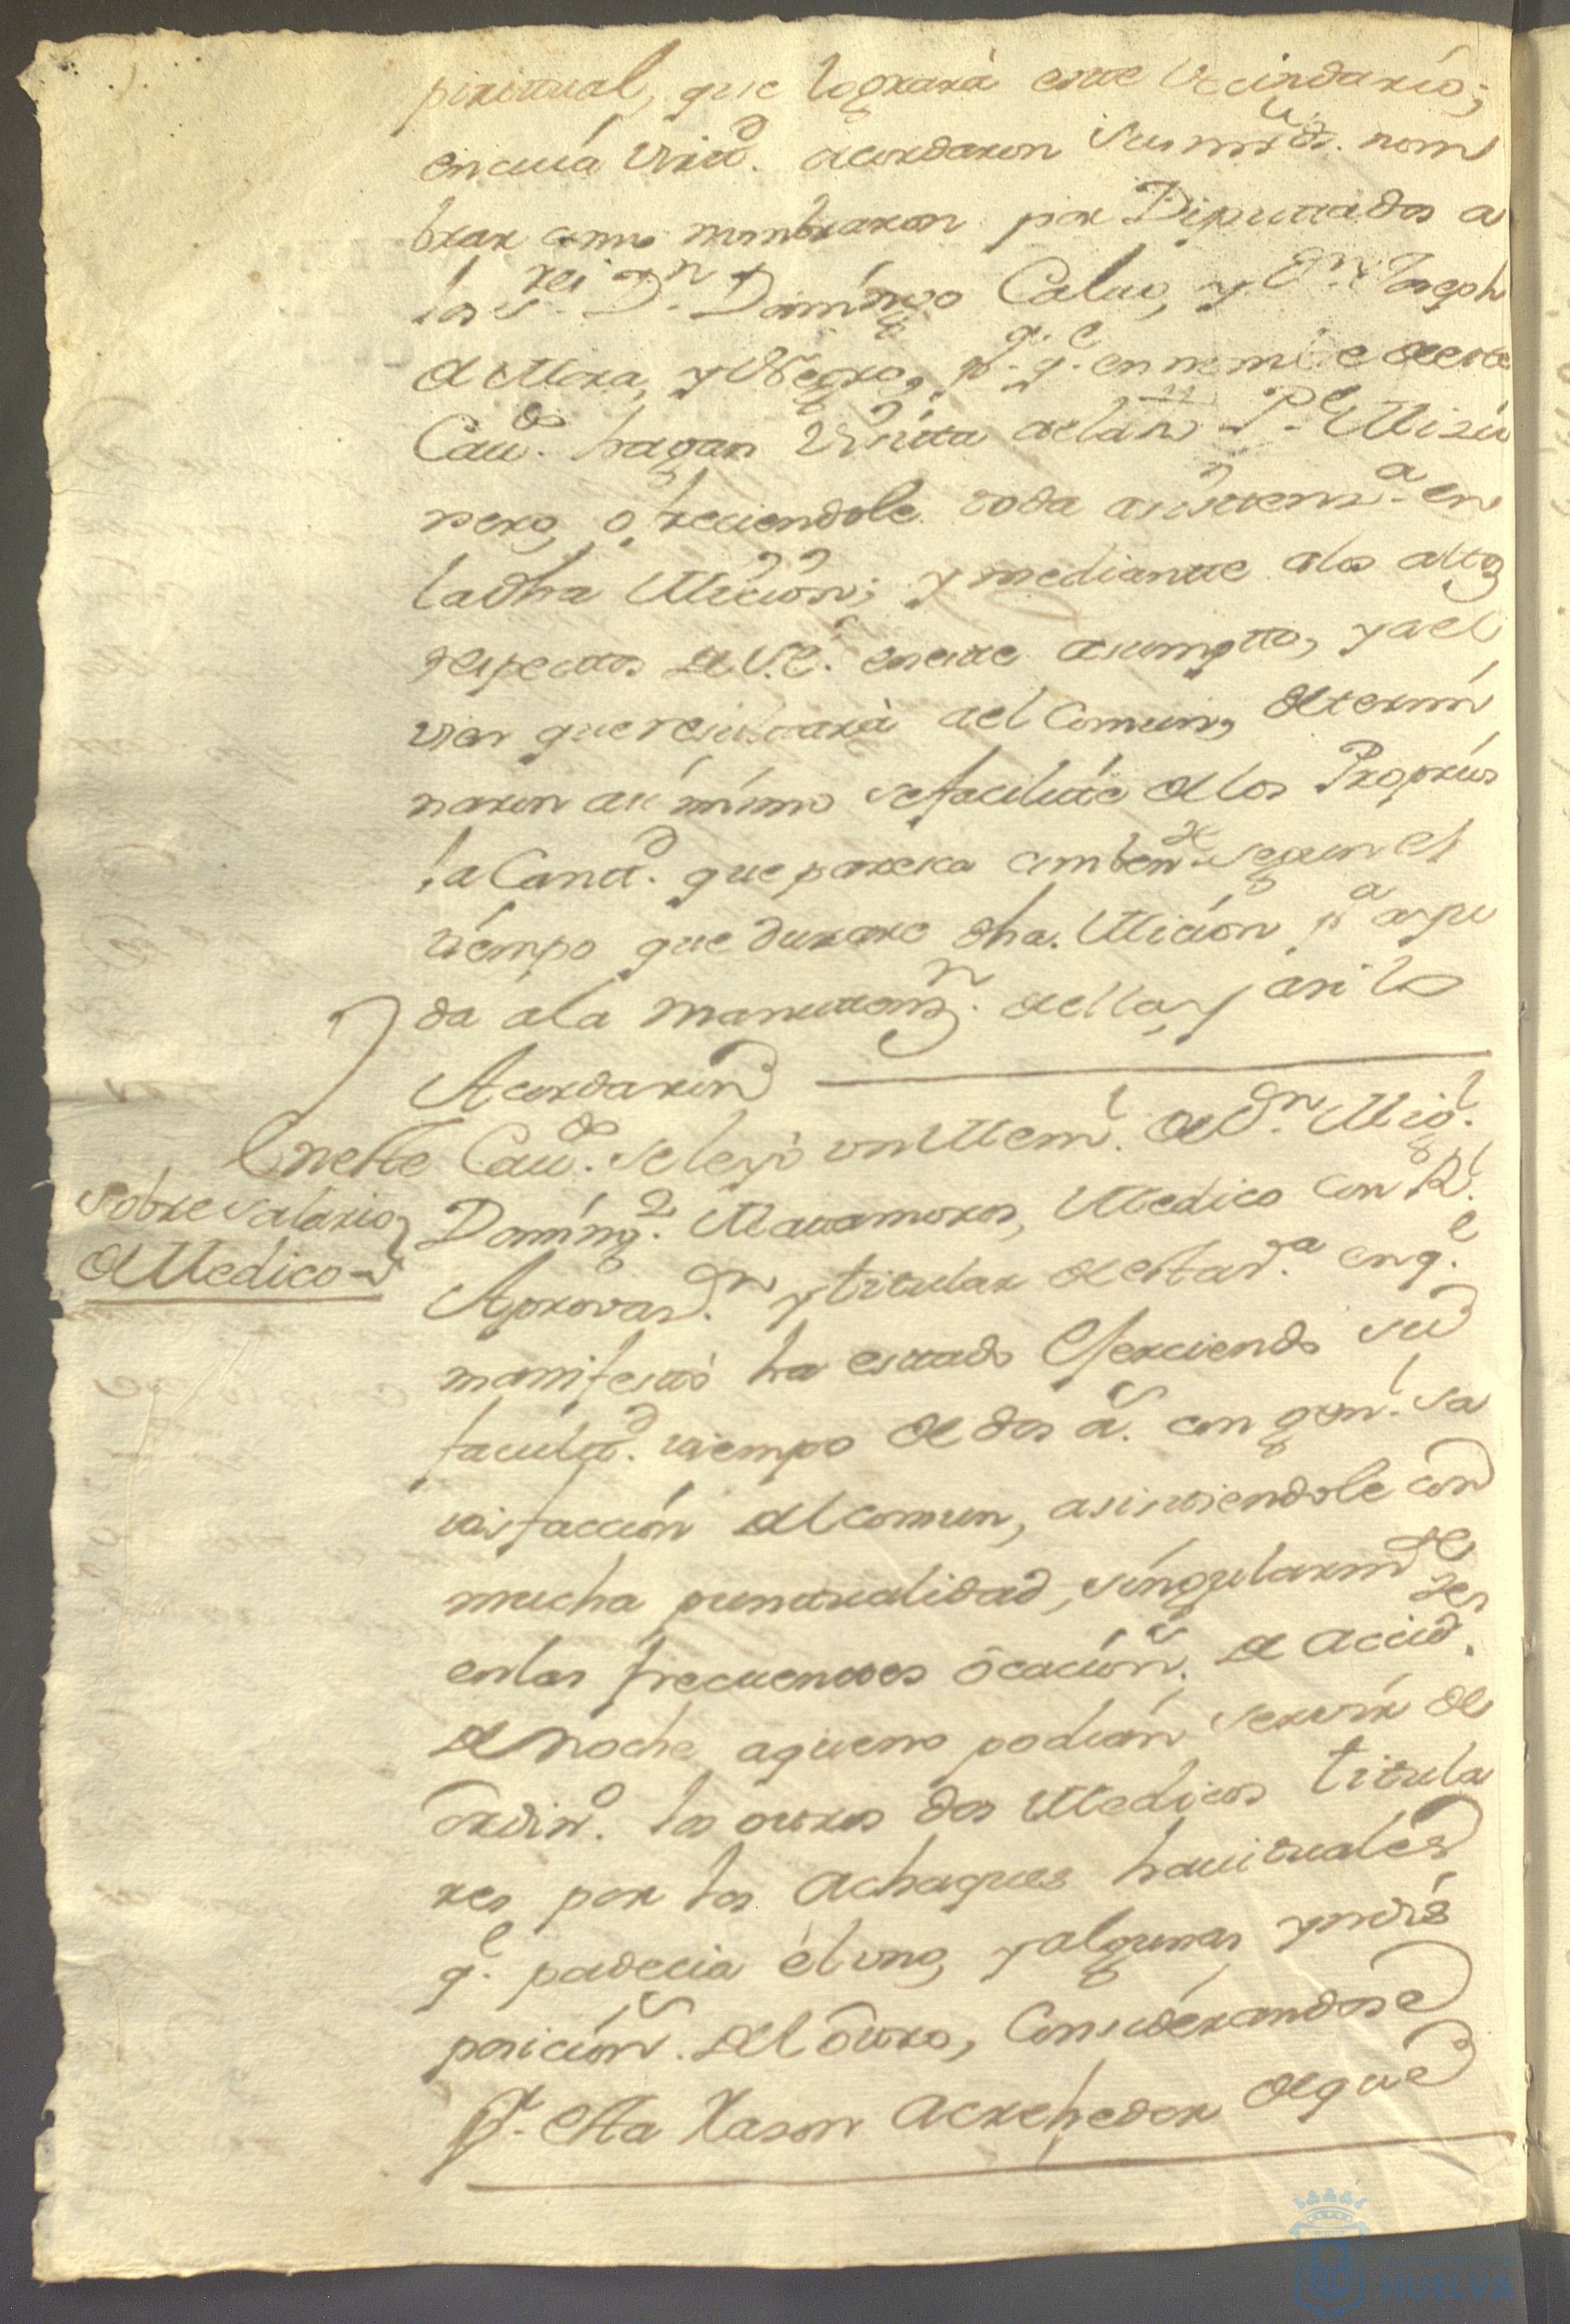 piritual, que lograrà este Vecindario;
en cuia Virtd. acordaron sus mrds. nom
brar como nombraron por Diputtados a
los Sres. Dn. Domingo Calvo, y Dn. Joseph
de Mora, y Negro, pa. qe. en nombre de este
Cavdo. hagan Visita al Pe. Misio
nero, ofreciendole toda asistenzª. en
la dha Mision; y mediantte a los altos
respecttos de S.E. en este asumptto, y a el
vien que resultarà a el Comun, determi
naron asi mismo se facilitte de los Proprios
la Cantd. que paresca combente. segun el
tiempo que durare dha. Micion pa. aiu
da a la manuttenzn. de ella, y asi lo
Acordaron
En este Cavdo. se leyò un Meml. de Dn. Migl.
sobre salario
de Medico
Domingz. Matamoros, Medico con Rl.
Aprovazn. y titular de esta Va. en qe.
manifestò ha estado Exerciendo su
facultd. tiempo de dos as. con genl. sa
tisfaccion del comun, asistiendole con
mucha puntualidad, singularmte.
en las frecuentes ôcacions. de accidtes.
de noche, a que no podian servir de
ordino. los otros dos Medicos titula
res por los Achaques havituales
qe. padecia el uno, y algunas yndis
posicions. del ôtro, Considerandose
Pr. esta Rason Acrehedor de que
HUELVA